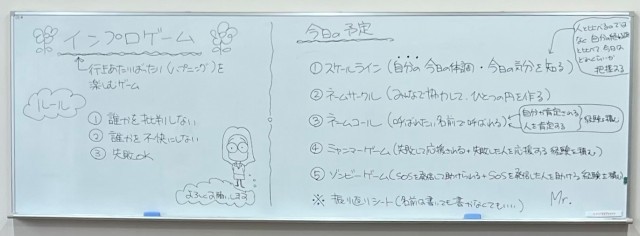 インプロゲーム
行きあたりばったり(ハプニング)を
楽しむゲーム
ルール
① 誰かを批判しない
② 誰かを不快にしない
③ 失敗OK
よろしくお願いします
今日の予定
人と比べるのでは
なく自分の
と比べて今日は
どれくらいか
把握する
① スケールライン(自分の今日の体調・今日の気分を知る)
② ネームサークル(みんなで協力して、ひとつの円を作る)
③ ネームコール(呼ばれたい名前で呼ばれる)
自分が肯定される
人を肯定する
経験を積む
④ ミャンマーゲーム(失敗して応援される+失敗した人を応援する経験を積む)
⑤ ゾンビーゲーム(SOSを発信して助けられる+SOSを発信した人を助ける経験を積む)
※ 振り返りシート(名前は書いても書かなくてもいい)
Mr.